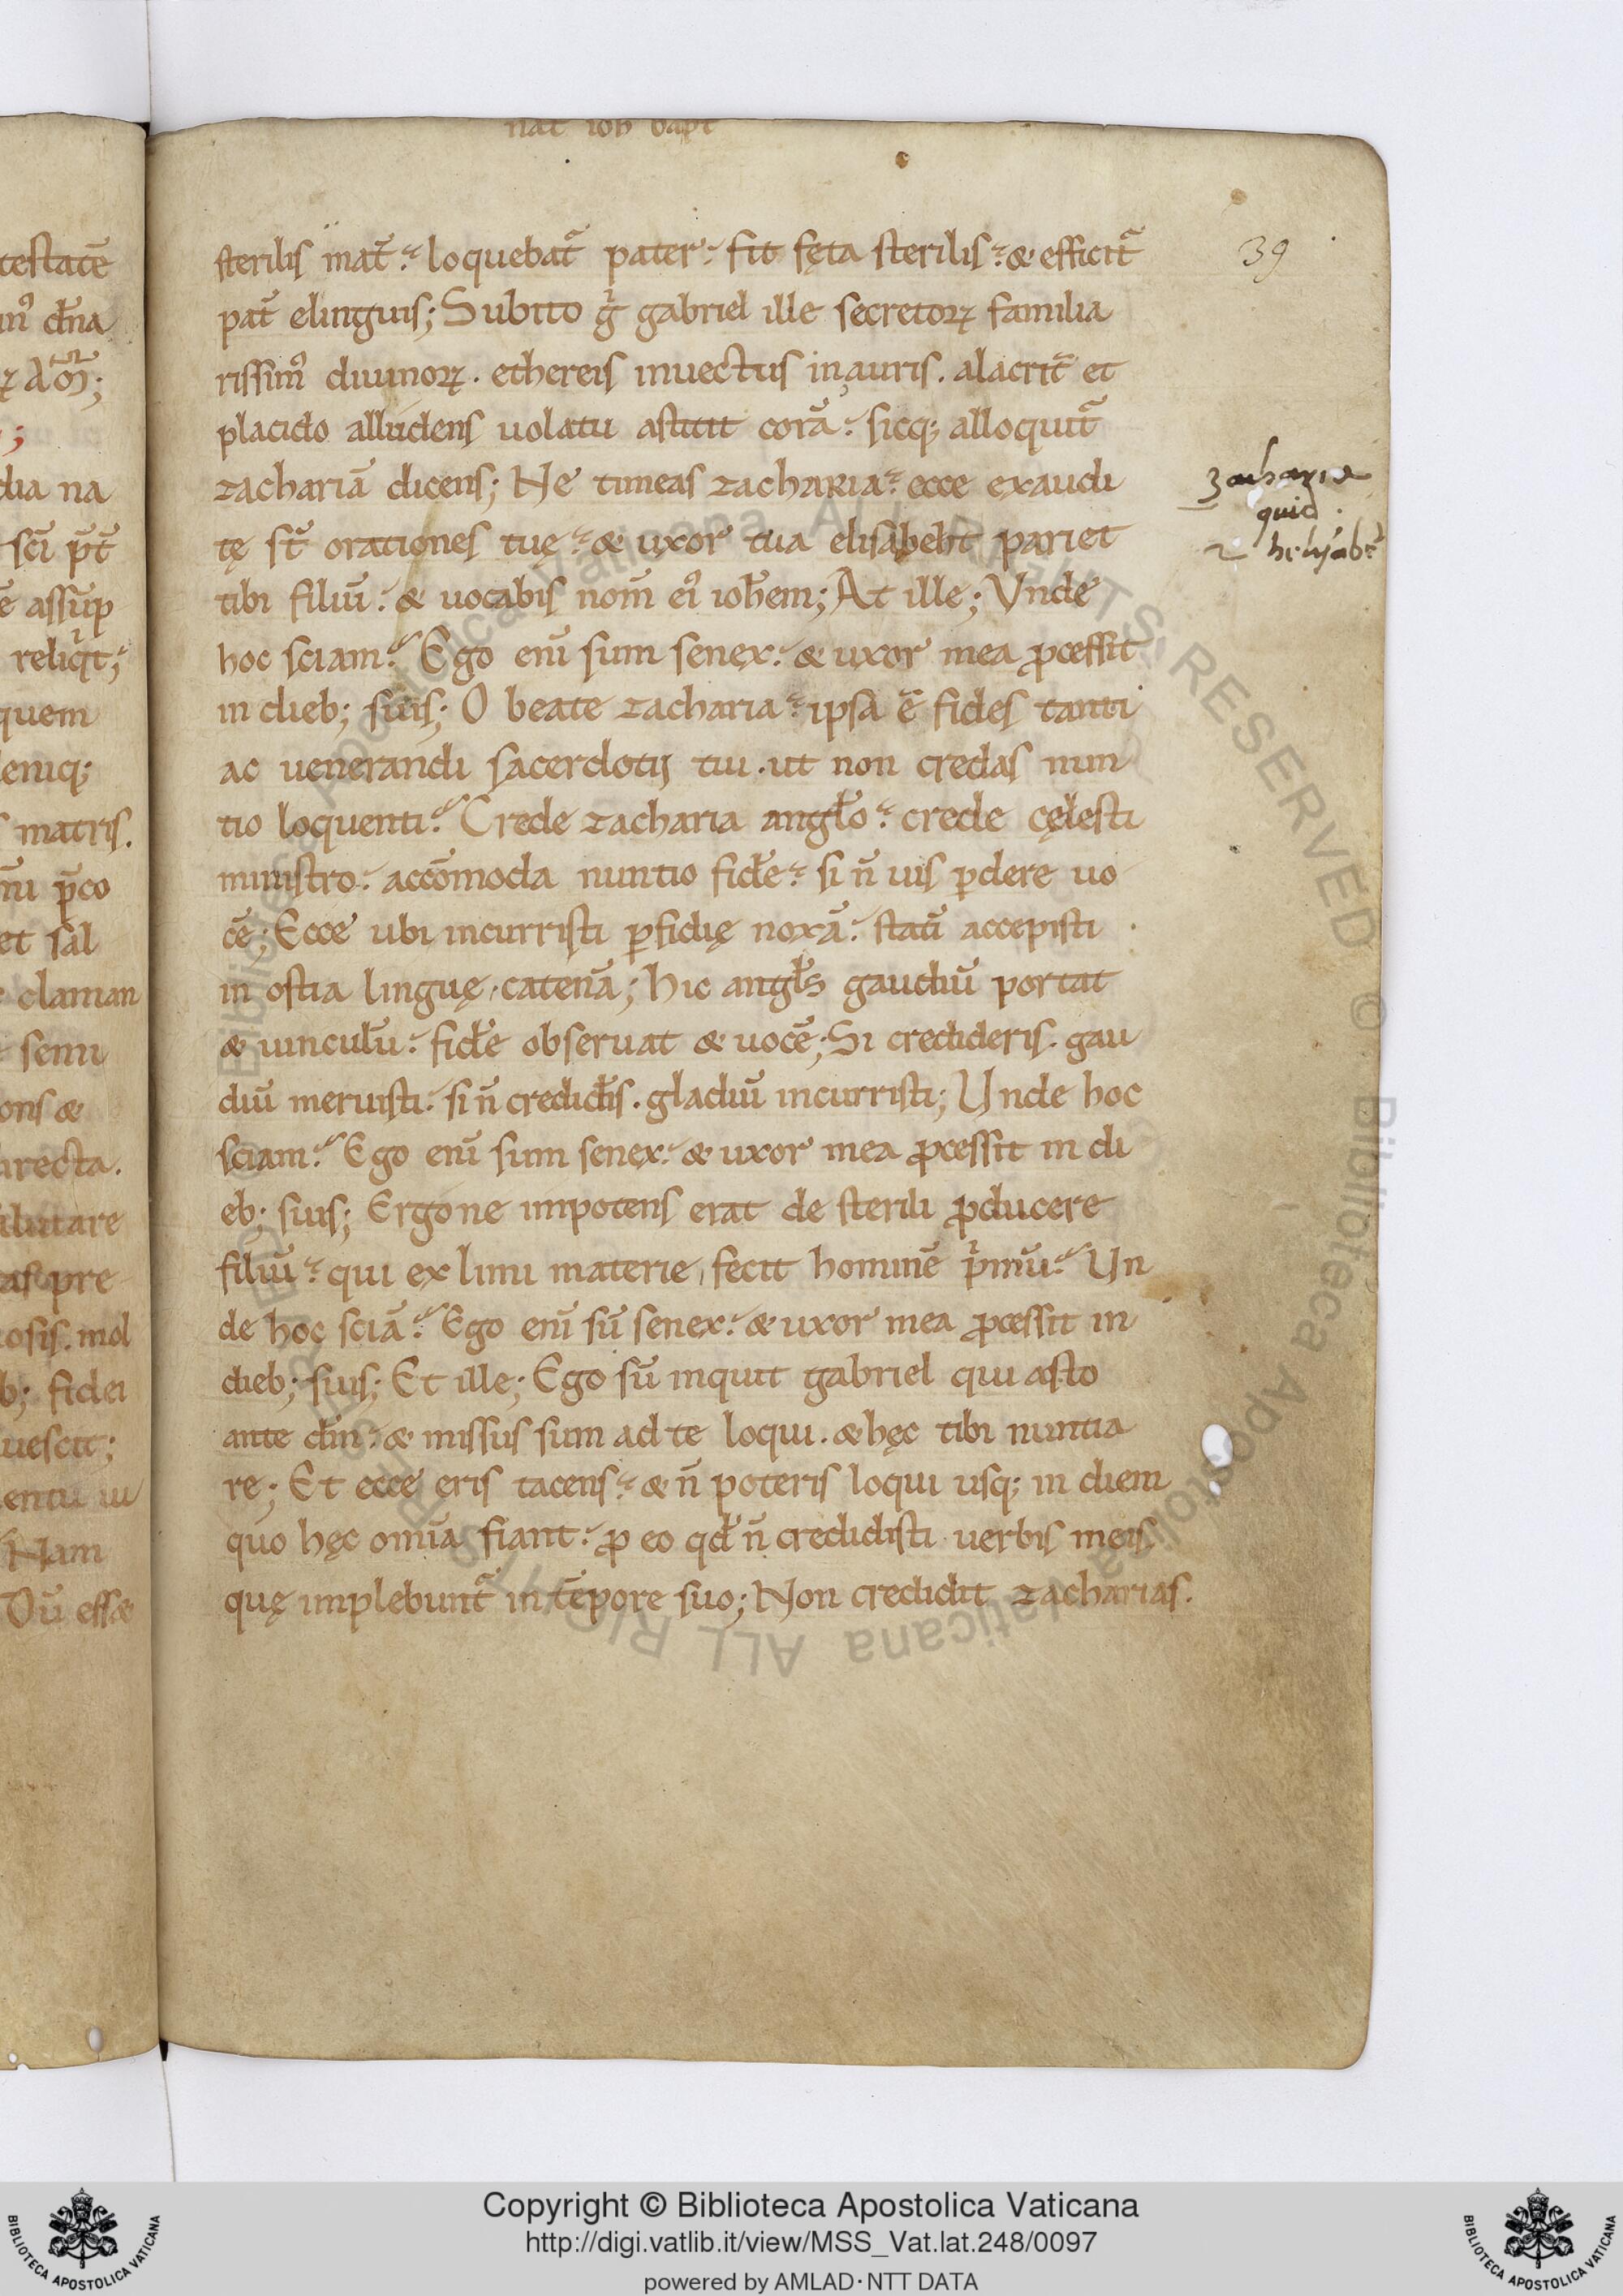 nat ioh bapt
39
sterilis mat̃. loquebat̃ pater. fit fęta sterilis. & efficit̃
pat̃ elinguis; Subito g̊ gabriel ille secretoꝝ familia
rissimꝰ diuinoꝝ. ethereis inuectus in auris. alacrit̃ et
placido alludens uolatu astitit corā. sicq; alloquit̃
zachariā dicens; Ne timeas zacharia. ecce exaudi
tę st̃ orationes tuę. & uxor tua elisabeht pariet
tibi filiū. & uocabis nom̄ eiꝰ ioh̄em; At ille; Vnde
hoc sciam? Ego eni̅ sum senex. & uxor mea ꝓcessit
in dieb; suis; O beate zacharia. ipsa ē fides tanti
ac uenerandi sacerdotij tui. ut non credas nun
tio loquenti? Crede zacharia angł̄o. crede cęlesti
ministro. accōmoda nuntio fidē. si n̄ uis ꝑdere uo
cē; Ecce ubi incurristi ꝑfidię noxā. statī accepisti
in ostia linguę catenā; hic angł̄s gaudiū portat
& uinculū. fidē obseruat & uocē; Si credideris. gau
diū meruisti. si n̄ credid̄is. gladiū incurristi; Unde hoc
sciam? Ego eni̅ sum senex. & uxor mea ꝓcessit in di
eb; suis; Ergone impotens erat de sterili ꝓducere
filiū. qui ex limi materie fecit hominē pⁱmū? Un
de hoc sciā? Ego eni̅ sū senex. & uxor mea ꝓcessit in
dieb; suis; Et ille; Ego sū inquit gabriel qui asto
ante dm̄. & missus sum ad te loqui. & hęc tibi nuntia
re; Et ecce eris tacens. & n̄ poteris loqui usq; in diem
quo hęc omīa fiant. ꝓ eo qd̄ n̄ credidisti uerbis meis
quę implebunt̃ in tēpore suo; Non credidit zacharias.
zacharie
quid
Copyright © Biblioteca Apostolica Vaticana
http://digi.vatlib.it/view/MSS_Vat.lat.248/0097
powered by AMLAD·NTT DATA
BIBLIOTECA APOSTOLICA VATICANA
BIBLIOTECA APOSTOLICA VATICANA